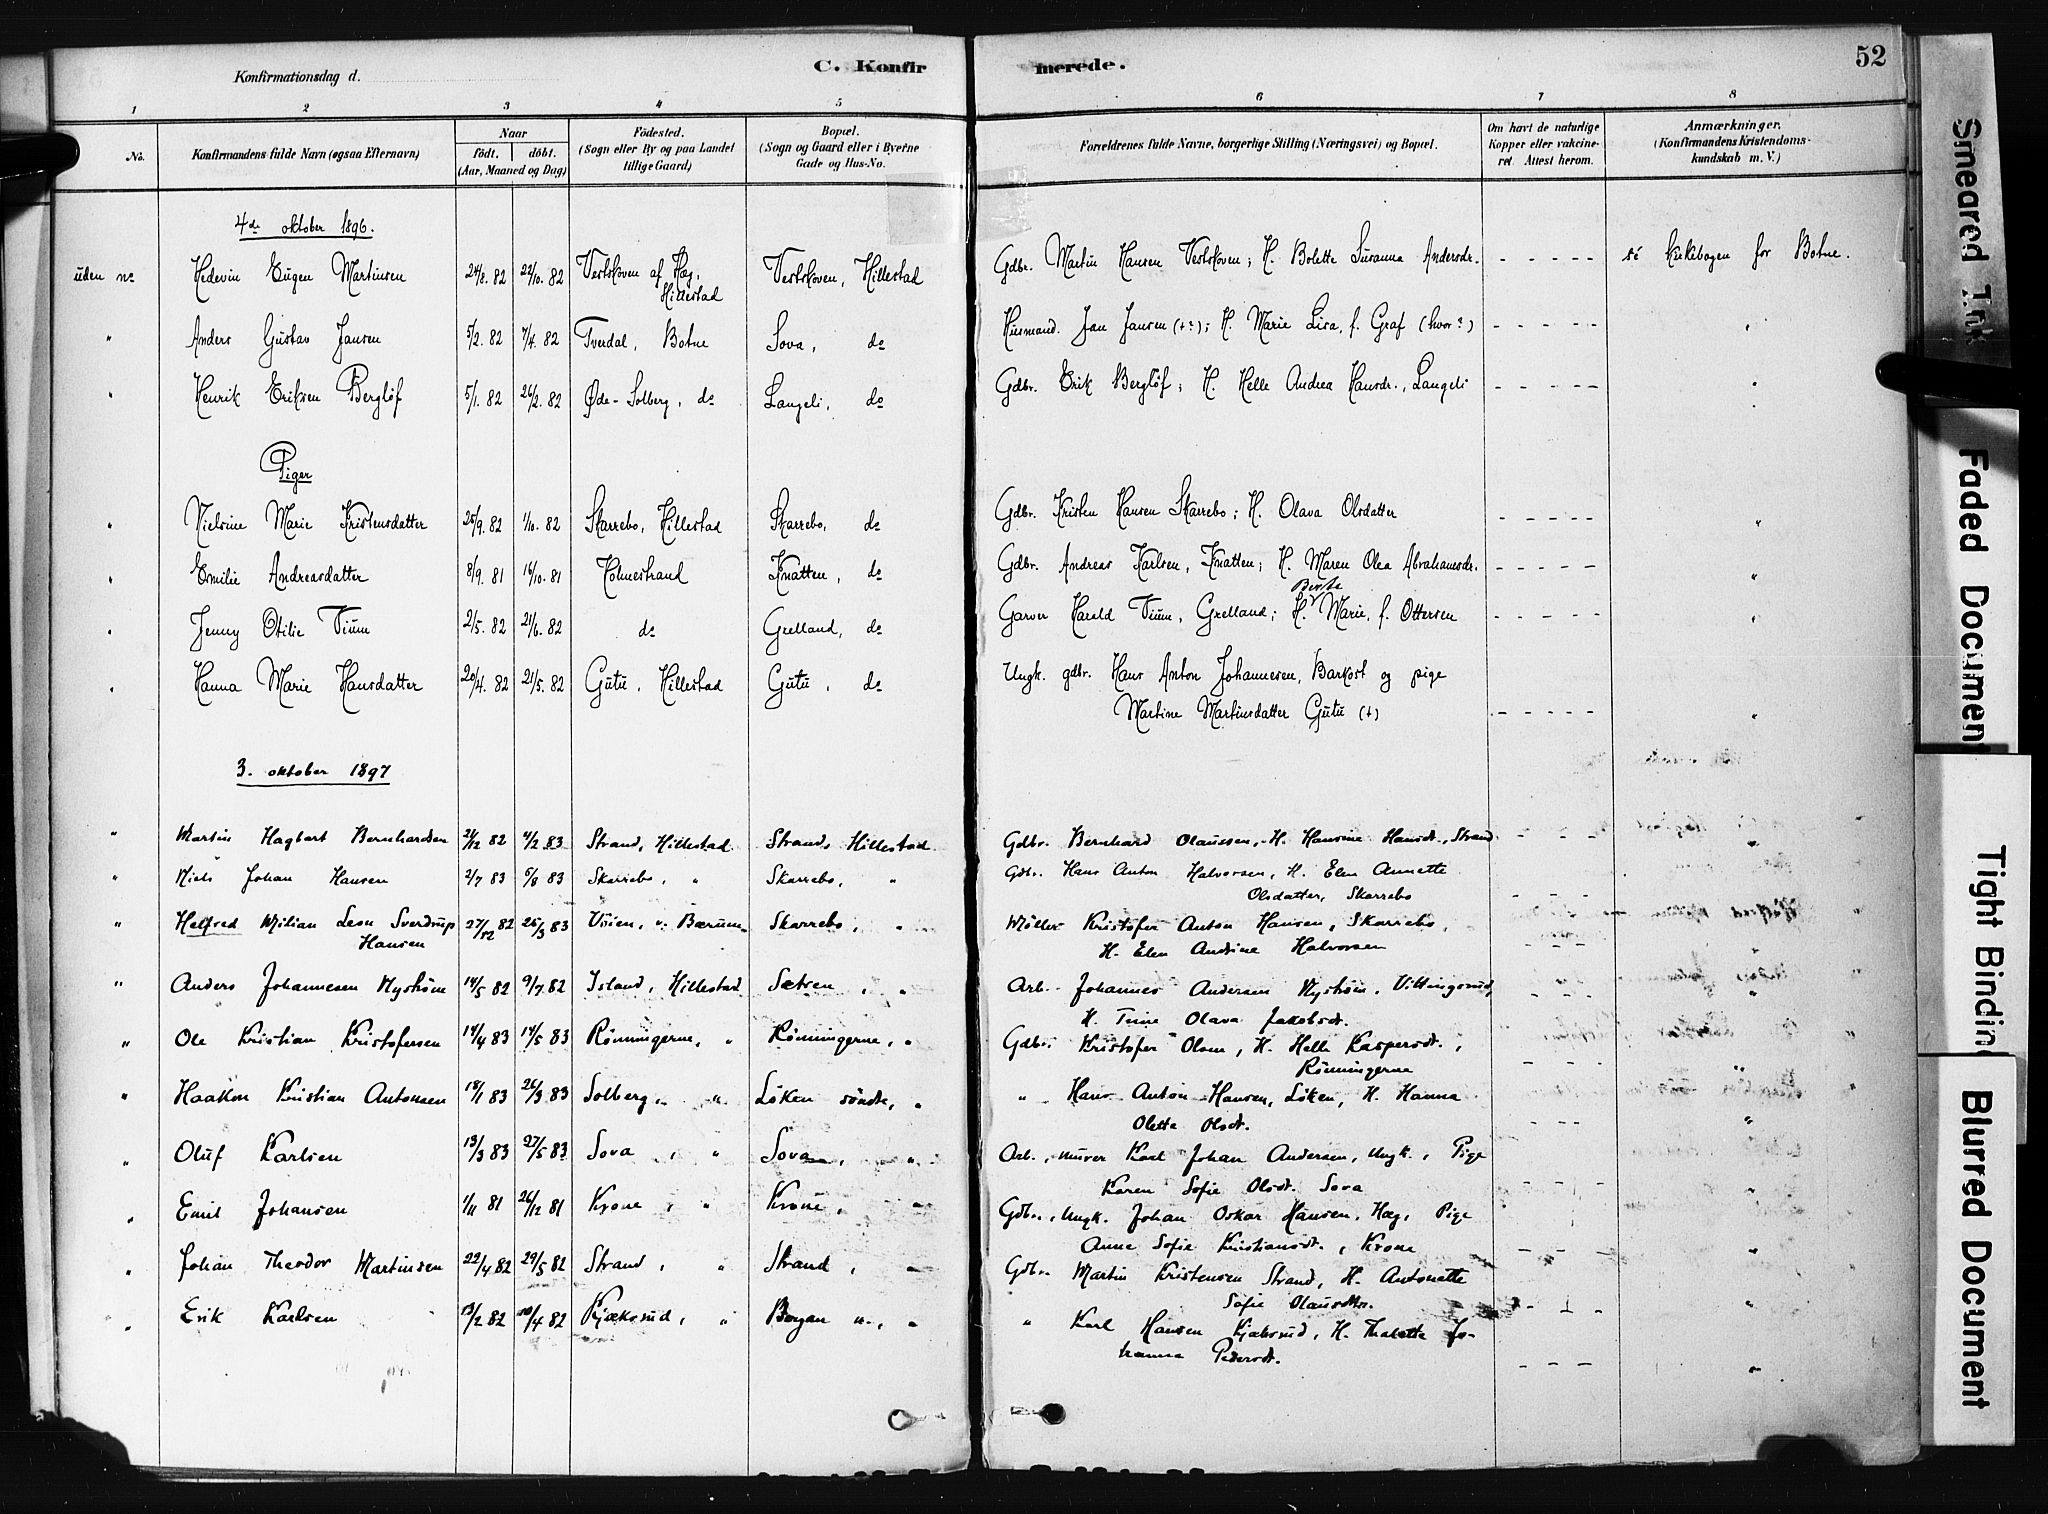 52
C. Konfirmerede.
Konfirmationsdag d.
1 2 3 4 5 6 7 8
No. Konfirmandens fulde Navn (ogsaa Efternavn) Naar født. døbt. (Aar, Maaned og Dag) Födested. (Sogn eller By og paa Landet tillige Gaard) Bopæl. (Sogn og Gaard eller i Byerne Gade og Hus-No. Forældrenes fulde Navne, borgerlige Stilling (Næringsvei) og Bopæl. Om havt de naturlige Kopper eller vakcineret. Attest herom. Anmærkninger. (Konfirmandens Kristendomskundskab m. V.)
4de oktober 1896.
uden no Hedevin Eugen Martinsen 24/8. 82 22/10. 82 Vestskoven af Hag, Hillestad Vestskoven, Hillestad Gdbr. Martin Hansen Vestskoven; H. Bolette Susanna Andersdr. - - - - - se kirkebogen for Botne.
" Anders Gustav Jansen 5/2. 82 7/4. 82 Tverdal, Botne Sova, do Husmand. Jan Jansen (+?); H. Marie Lisa, f. Graf (hvor?) - - - - - "
" Henrik Eriksen Berglöf 5/1. 82 26/2. 82 Øde-Solberg, do Langeli, do Gdbr. Erik Berglöf; H. Helle Andrea Hansdr., Langeli - - - - - "
Piger
" Nielsine Marie Kristensdatter 25/9. 82 1/10. 82 Skarrebo, Hillestad Skarrebo, do Gdbr. Kristen Hansen Skarrebo; H. Olava Olsdatter - - - - - "
" Emilie Andreasdatter 8/9. 81 16/10. 81 Holmestrand Knatten, do Gdbr. Andreas Karlsen, Knatten; H. Maren Olea Abrahamsdr. - - - - - "
" Jenny Otilie Tium 2/5. 82 21/6. 82 do Grelland, do Garver Harald Tium, Grelland; H. Berte Marie, f. Ottersen - - - - - "
" Hanna Marie Hansdatter 20/4. 82 21/5. 82 Gutu, Hillestad Gutu, do Ungk. gdbr. Hans Anton Johannesen, Barkost og pige
Martine Martinsdatter Gutu (+) - - - - - "
3. oktober 1897
" Martin Hagbart Bernhardsen 21/12 82 4/2 83 Strand, Hillestad Strand, Hillestad Gdbr. Bernhard Olaussen, H. Hansine Hansdt., Strand - - - "
" Niels Johan Hansen 2/7 83 5/8 83 Skarrebo, " Skarrebo, " Gdbr. Hans Anton Halvorsen, H. Elen Annette
Olsdatter, Skarrebo - - -
" Helfred Milian Leon Sverdrup 27/12 82 25/3 83 Vöien, " Bærum Skarrebo, " Møller Kristofer Anton Hansen, Skarrebo,
Hansen H. Elen Andrine Halvorsen - - -
" Anders Johannesen Nyström 14/5 82 9/7 82 Island, Hillestad Sætren, " Arb. Johannes Andersen Nyström, Vittingsrud, - - - "
H. Trine Olava Jakobsdt.
" Ole Kristian Kristofersen 14/4 83 14/5 83 Rönningerne, " Rönningerne, " Gdbr. Kristofer Olsen, H. Helle Kaspersdt.,
Rönningerne - - - "
" Haakon Kristian Antonsen 18/1 83 26/3 83 Solberg, " Löken söndre, " " Hans Anton Hansen, Löken, H. Hanna
Olette Olsdt. - - - "
" Oluf Karlsen 13/3 83 27/5 83 Sova, " Sova, " Arb., murer Karl Johan Andersen, ungk., Pige
Karen Sofie Olsdt. Sova - - - "
" Emil Johansen 1/11 81 26/12 81 Krone, " Krone, " Gdbr., Ungk. Johan Oskar Hansen, Hæg, Pige
Anne Sofie Kristiansdt., Krone - - - "
" Johan Theodor Martinsen 22/4 82 29/5 82 Strand, " Strand, " Gdbr. Martin Kristensen Strand, H. Antonette
Sofie Olausdtr. - - - "
" Erik Karlsen 13/2 82 10/4 82 Kjæksrud, " Bergan n., " " Karl Hansen Kjæksrud, H. Thalette Jo-
hanna Pedersdt. - - - "
Smeared Ink
Faded Document
Tight Binding
Blurred Document